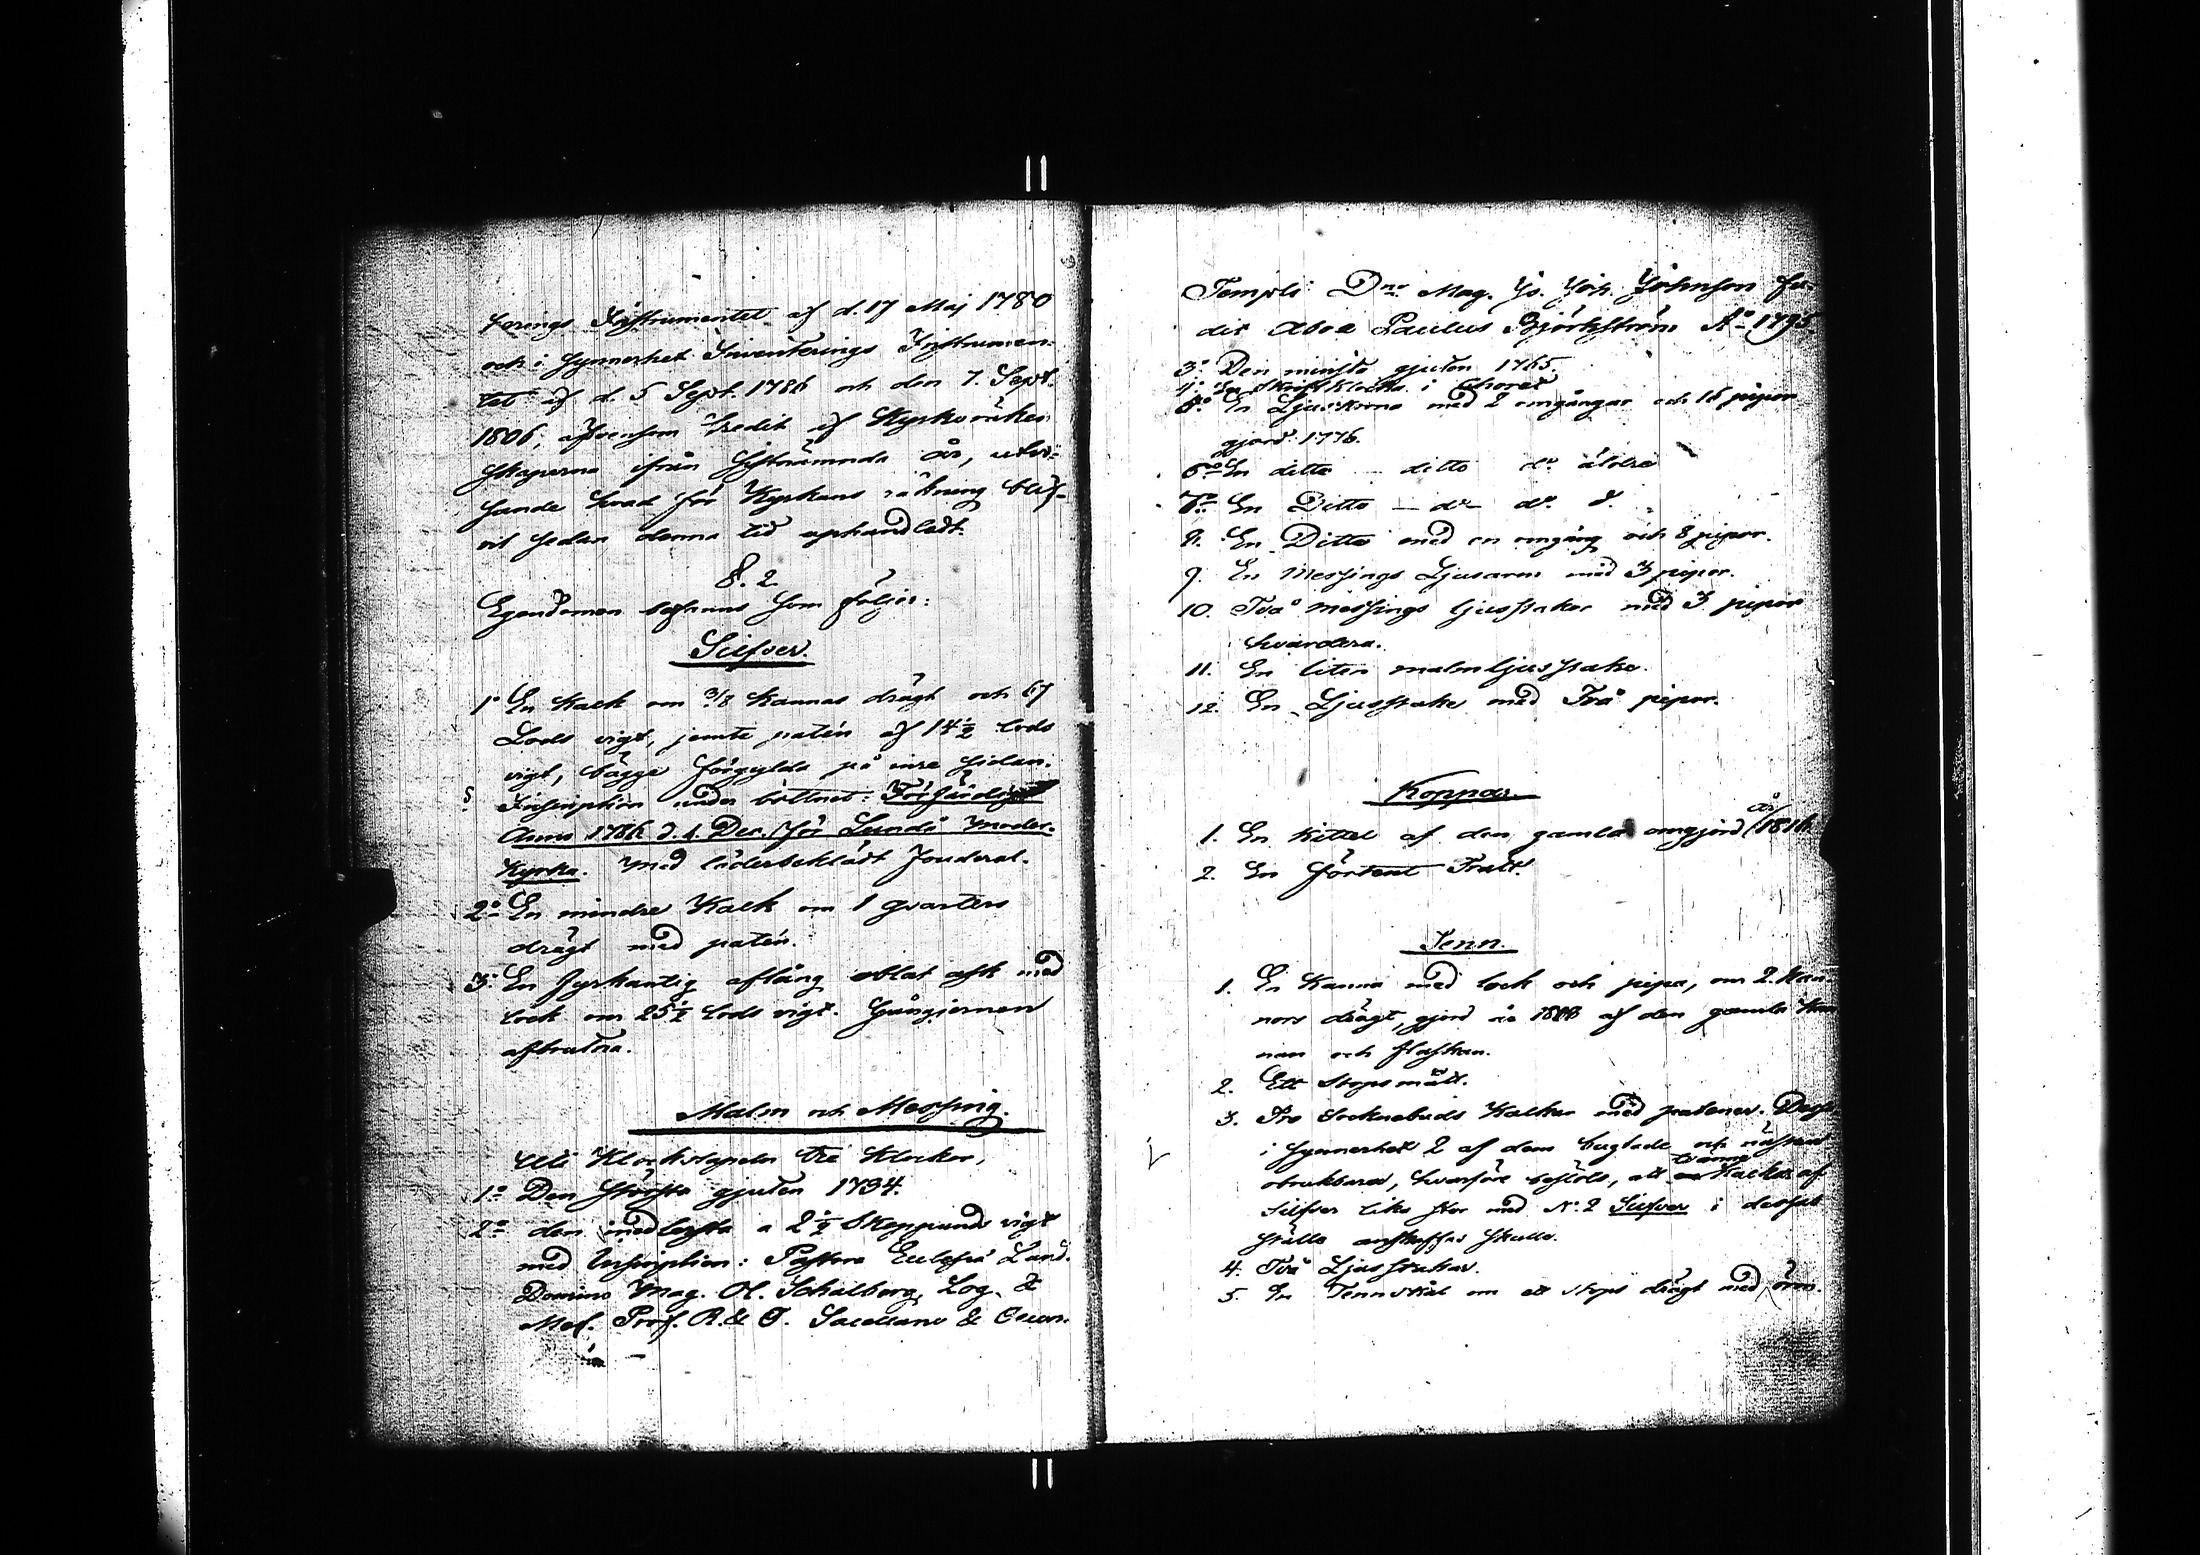 terings Instrumentet af d. 17 Maj 1780
och i synnerhet Inventerings Instrumen-
tet af d. 5 Sept. 1786 och den 7. Sept.
1806, äfvensom Credit af Kyrkoräken-
skaperna ifrån sistnämnda år, utvi-
sande hvad för Kyrkans räkning blif-
vit sedan denna tid uphandladt.
§. 2
Egendomen befanns som följer:
Silfver.
1º En Kalk om 3/8 Kannas drägt och 67
Lods vigt, jemte patén af 14½ lods
vigt, bägge förgylda på inre sidan.
Inscription under bottnet: Förfärdigat
Anno 1786 d. 1. Dec. för Lundo Moder-
Kyrka. Med läderbeklädt Fouderal.
2º En mindre Kalk om 1 qvarters
drägt med patén.
3º En fyrkantig aflång oblat ask med
lock om 25½ lods vigt. Gångjernen
afbrutna.
Malm och Messing.
Uti Klockstapeln tre Klockor,
1º Den största gjuten 1734.
2º den medlersta a 2½ Skeppunds vigt
med Inscription: Pastore Eclesiæ Lund.
Domino Mag. Ol. Schalberg, Log. &
Met. Prof. R. & O. Sacellano &
Templi Dno Mag. Jo. Joh. Johnson fu-
dit Aboæ Paulus Björkström Aº 1795
3º Den minsta gjuten 1765.
4º En Skriftklocka i Choret
5º En Ljuskrona med 2 omgångar och 16 pipor
gjord 1776.
6º En ditto - ditto dº äldre
7º En Ditto - dº dº dº
8. En Ditto med en omgång och 8 pipor.
9. En Messings Ljusarm med 3 pipor.
10. Två Messings ljusstakar med 3 pipor
hvardera.
11. En liten malm ljusstake.
12. En Ljusstake med Två pipor.
Koppar.
år
1. En Kittel af den gamla omgjord 1816.
2. En förtent Tratt.
Tenn.
1. En Kanna med lock och pipa, om 2. Kan-
nors drägt, gjord år 1808 af den gamla Kan
nan och flaskan.
2. Ett Stopsmått.
3. Tre Socknebuds Kalkar med patener. Dess
i synnerhet 2 af dem buglade och nästan
tvänne
obrukbara, hvarföre beslöts, att en Kalkar af
Silfver lika stor med Nº 2 Silfver i desses
ställe anskaffas skulle.
4. Två Ljusstakar.
5. En Tennskål om ett stops drägt med öron.